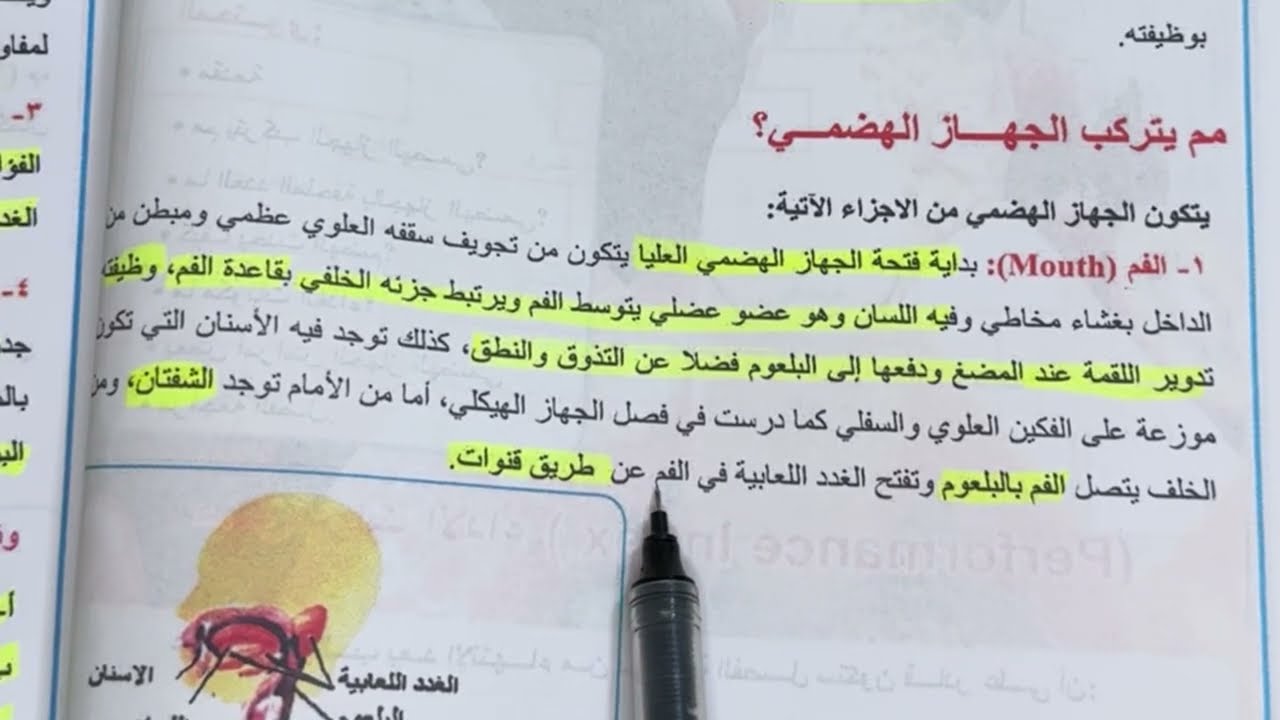 بوظيفته.
مم يتركب الجهـــاز الهضمـــي؟
يتكون الجهاز الهضمي من الاجزاء الآتية:
١- الفم (Mouth): بداية فتحة الجهاز الهضمي العليا يتكون من تجويف سقفه العلوي عظمي ومبطن من
الداخل بغشاء مخاطي وفيه اللسان وهو عضو عضلي يتوسط الفم ويرتبط جزئه الخلفي بقاعدة الفم، وظيفته
تدوير اللقمة عند المضغ ودفعها إلى البلعوم فضلا عن التذوق والنطق، كذلك توجد فيه الأسنان التي تكون
موزعة على الفكين العلوي والسفلي كما درست في فصل الجهاز الهيكلي، أما من الأمام توجد الشفتان، ومن
الخلف يتصل الفم بالبلعوم وتفتح الغدد اللعابية في الفم عن طريق قنوات.
الاسنان
الغدد اللعابية
البلعوم
لمفاو
٣-
الغد
٤-
جد
بال
الب
وذ
أ-